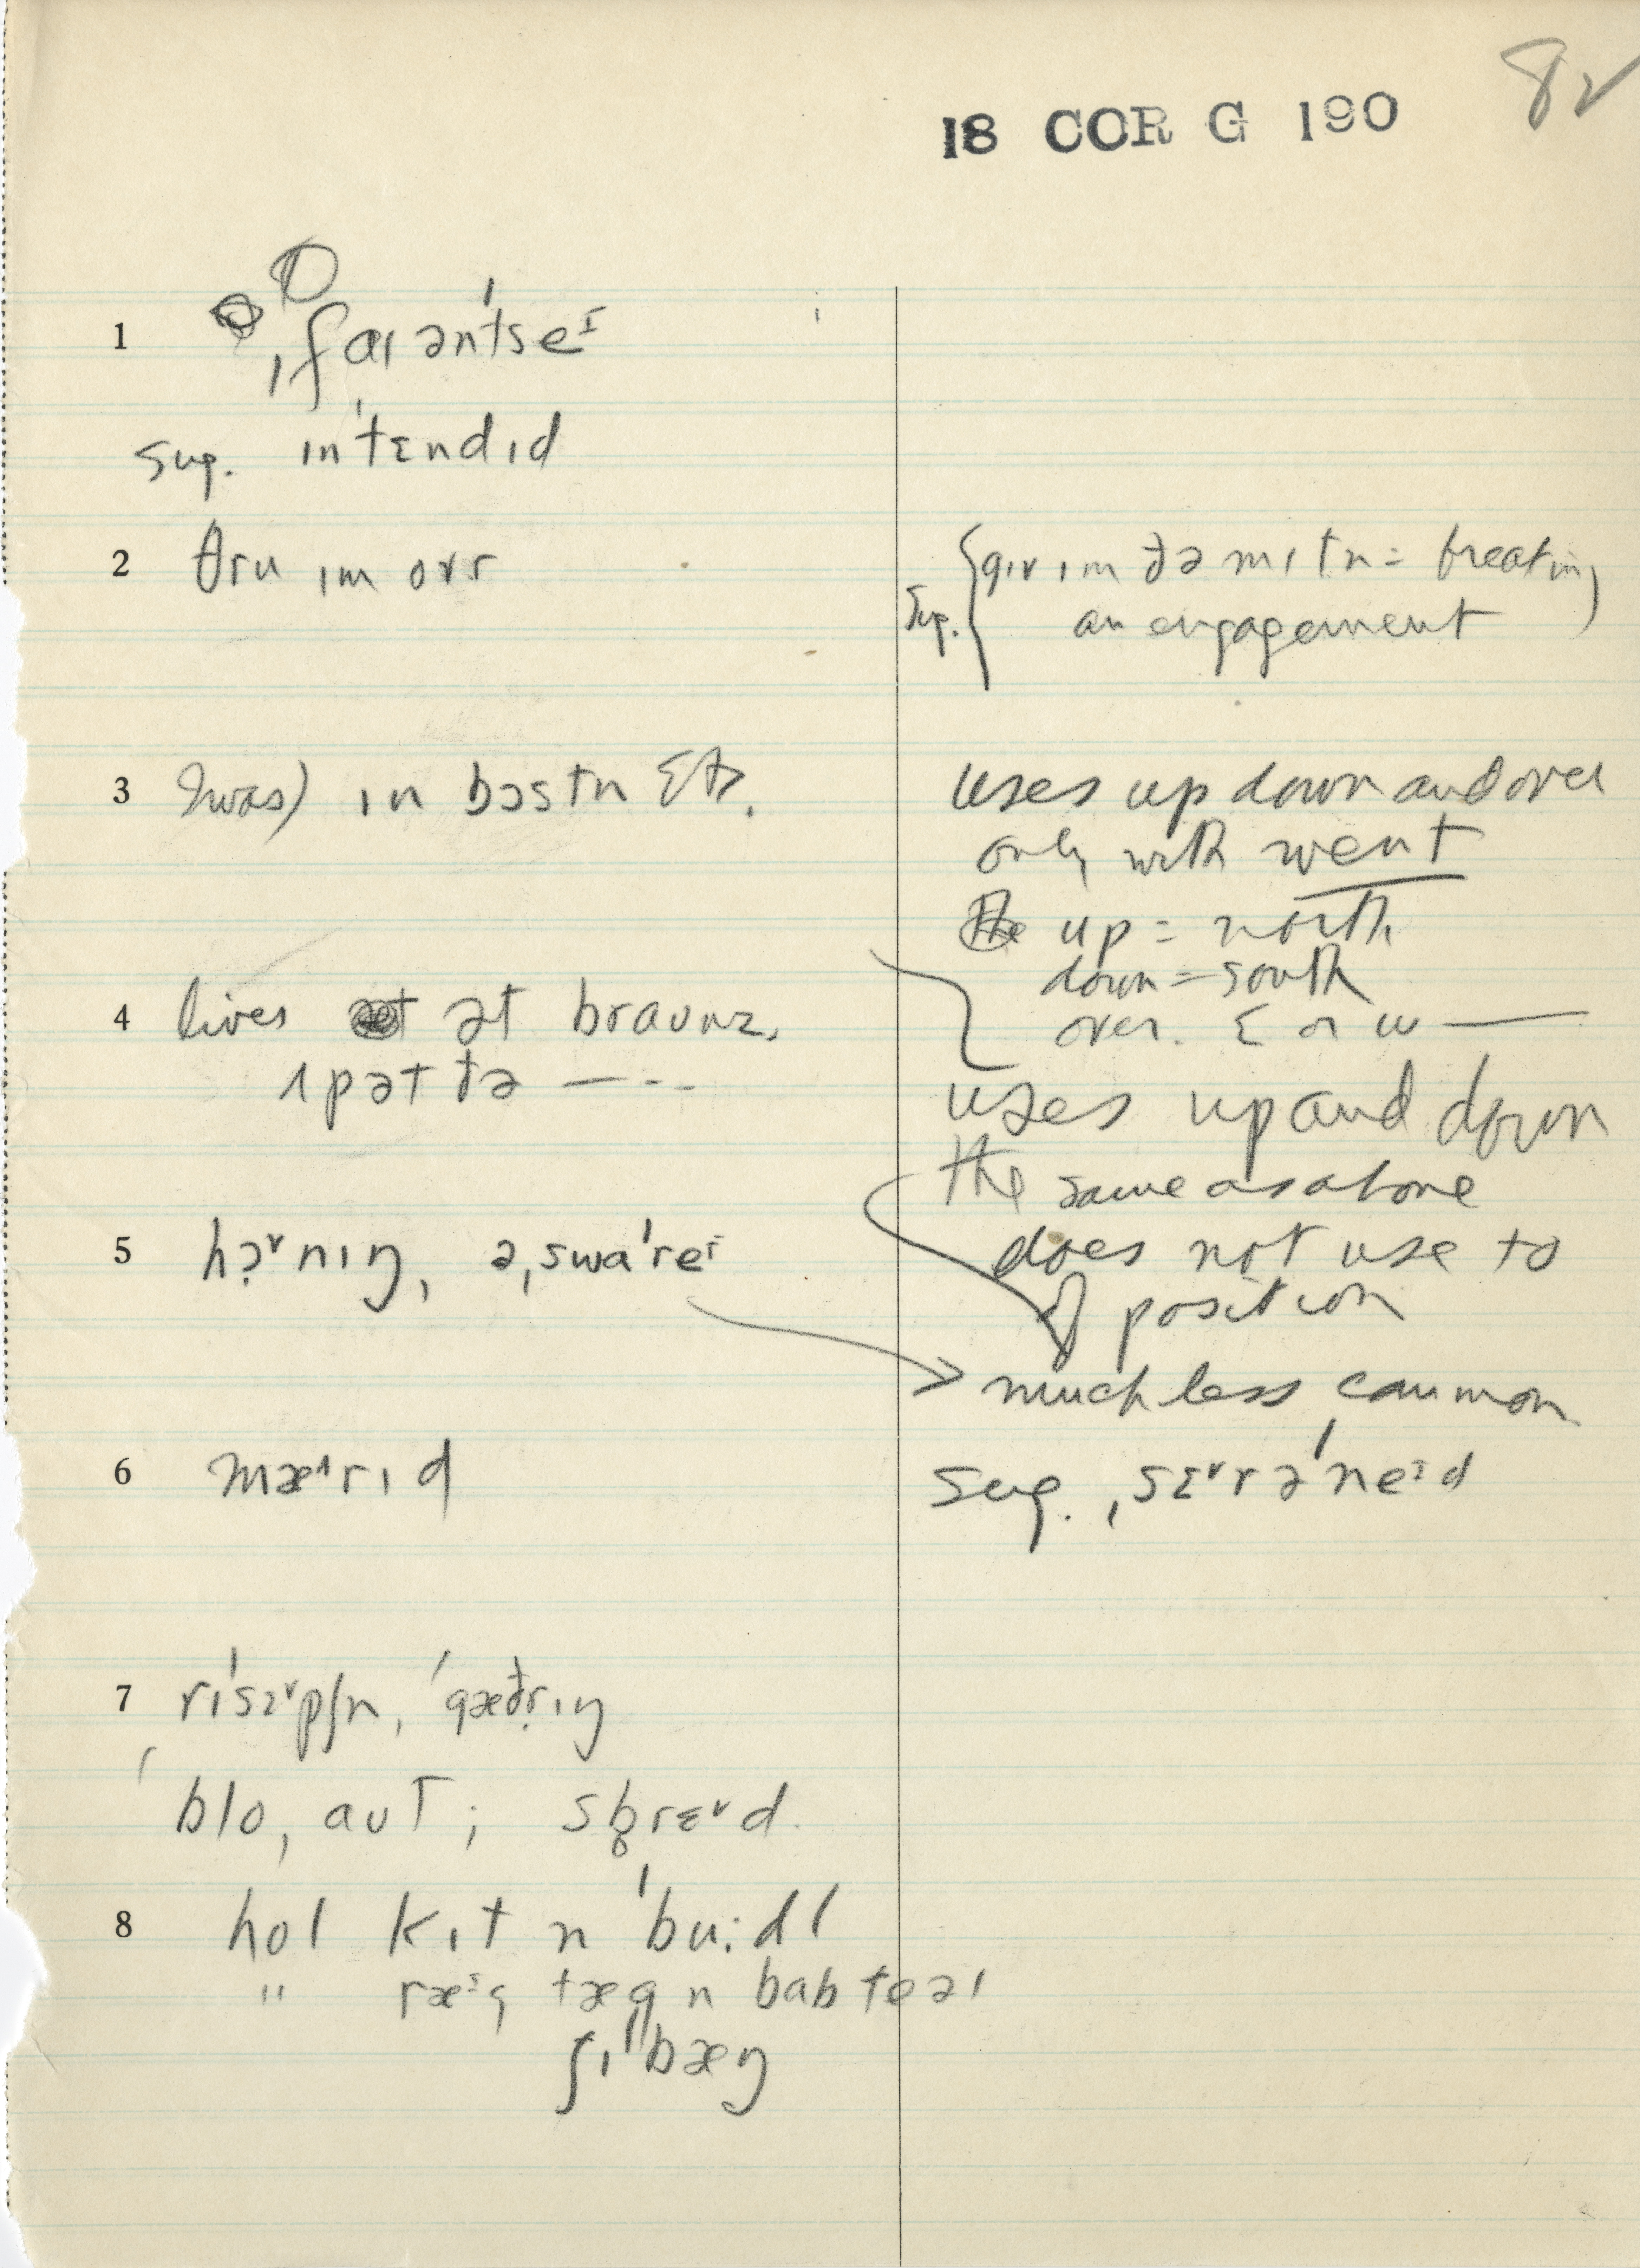 82
18 COR G 190
1 ˌfaɪənˈtseɪ
Sug. ɪnˈtɛndɪd
2 θru ɪm ovr
Sug. {gɪv ɪm ðə mɪtn = breaking
an engagement
3 was) ɪn bɔstn
uses up down and over
only with went
up = north
down = south
over. E or W —
4 lives ət braunz.
ʌp ət ðə — - -
uses up and down
the same as above
does not use to
of position
5 hɔ˞nɪŋ, əˌswaˈreɪ
much less common
6 mæ^rɪd
Sug. ˌsɛ˅rəˈneɪd
7 rɪˈsɛ˅pʃn, ˈgæðrɪŋ
ˈblo, aut; sb̥rɛ˅d.
8 hol kɪt n ˈbu:dl
" ræɪg tæg n bab teəl
ʃɪˈbæŋ